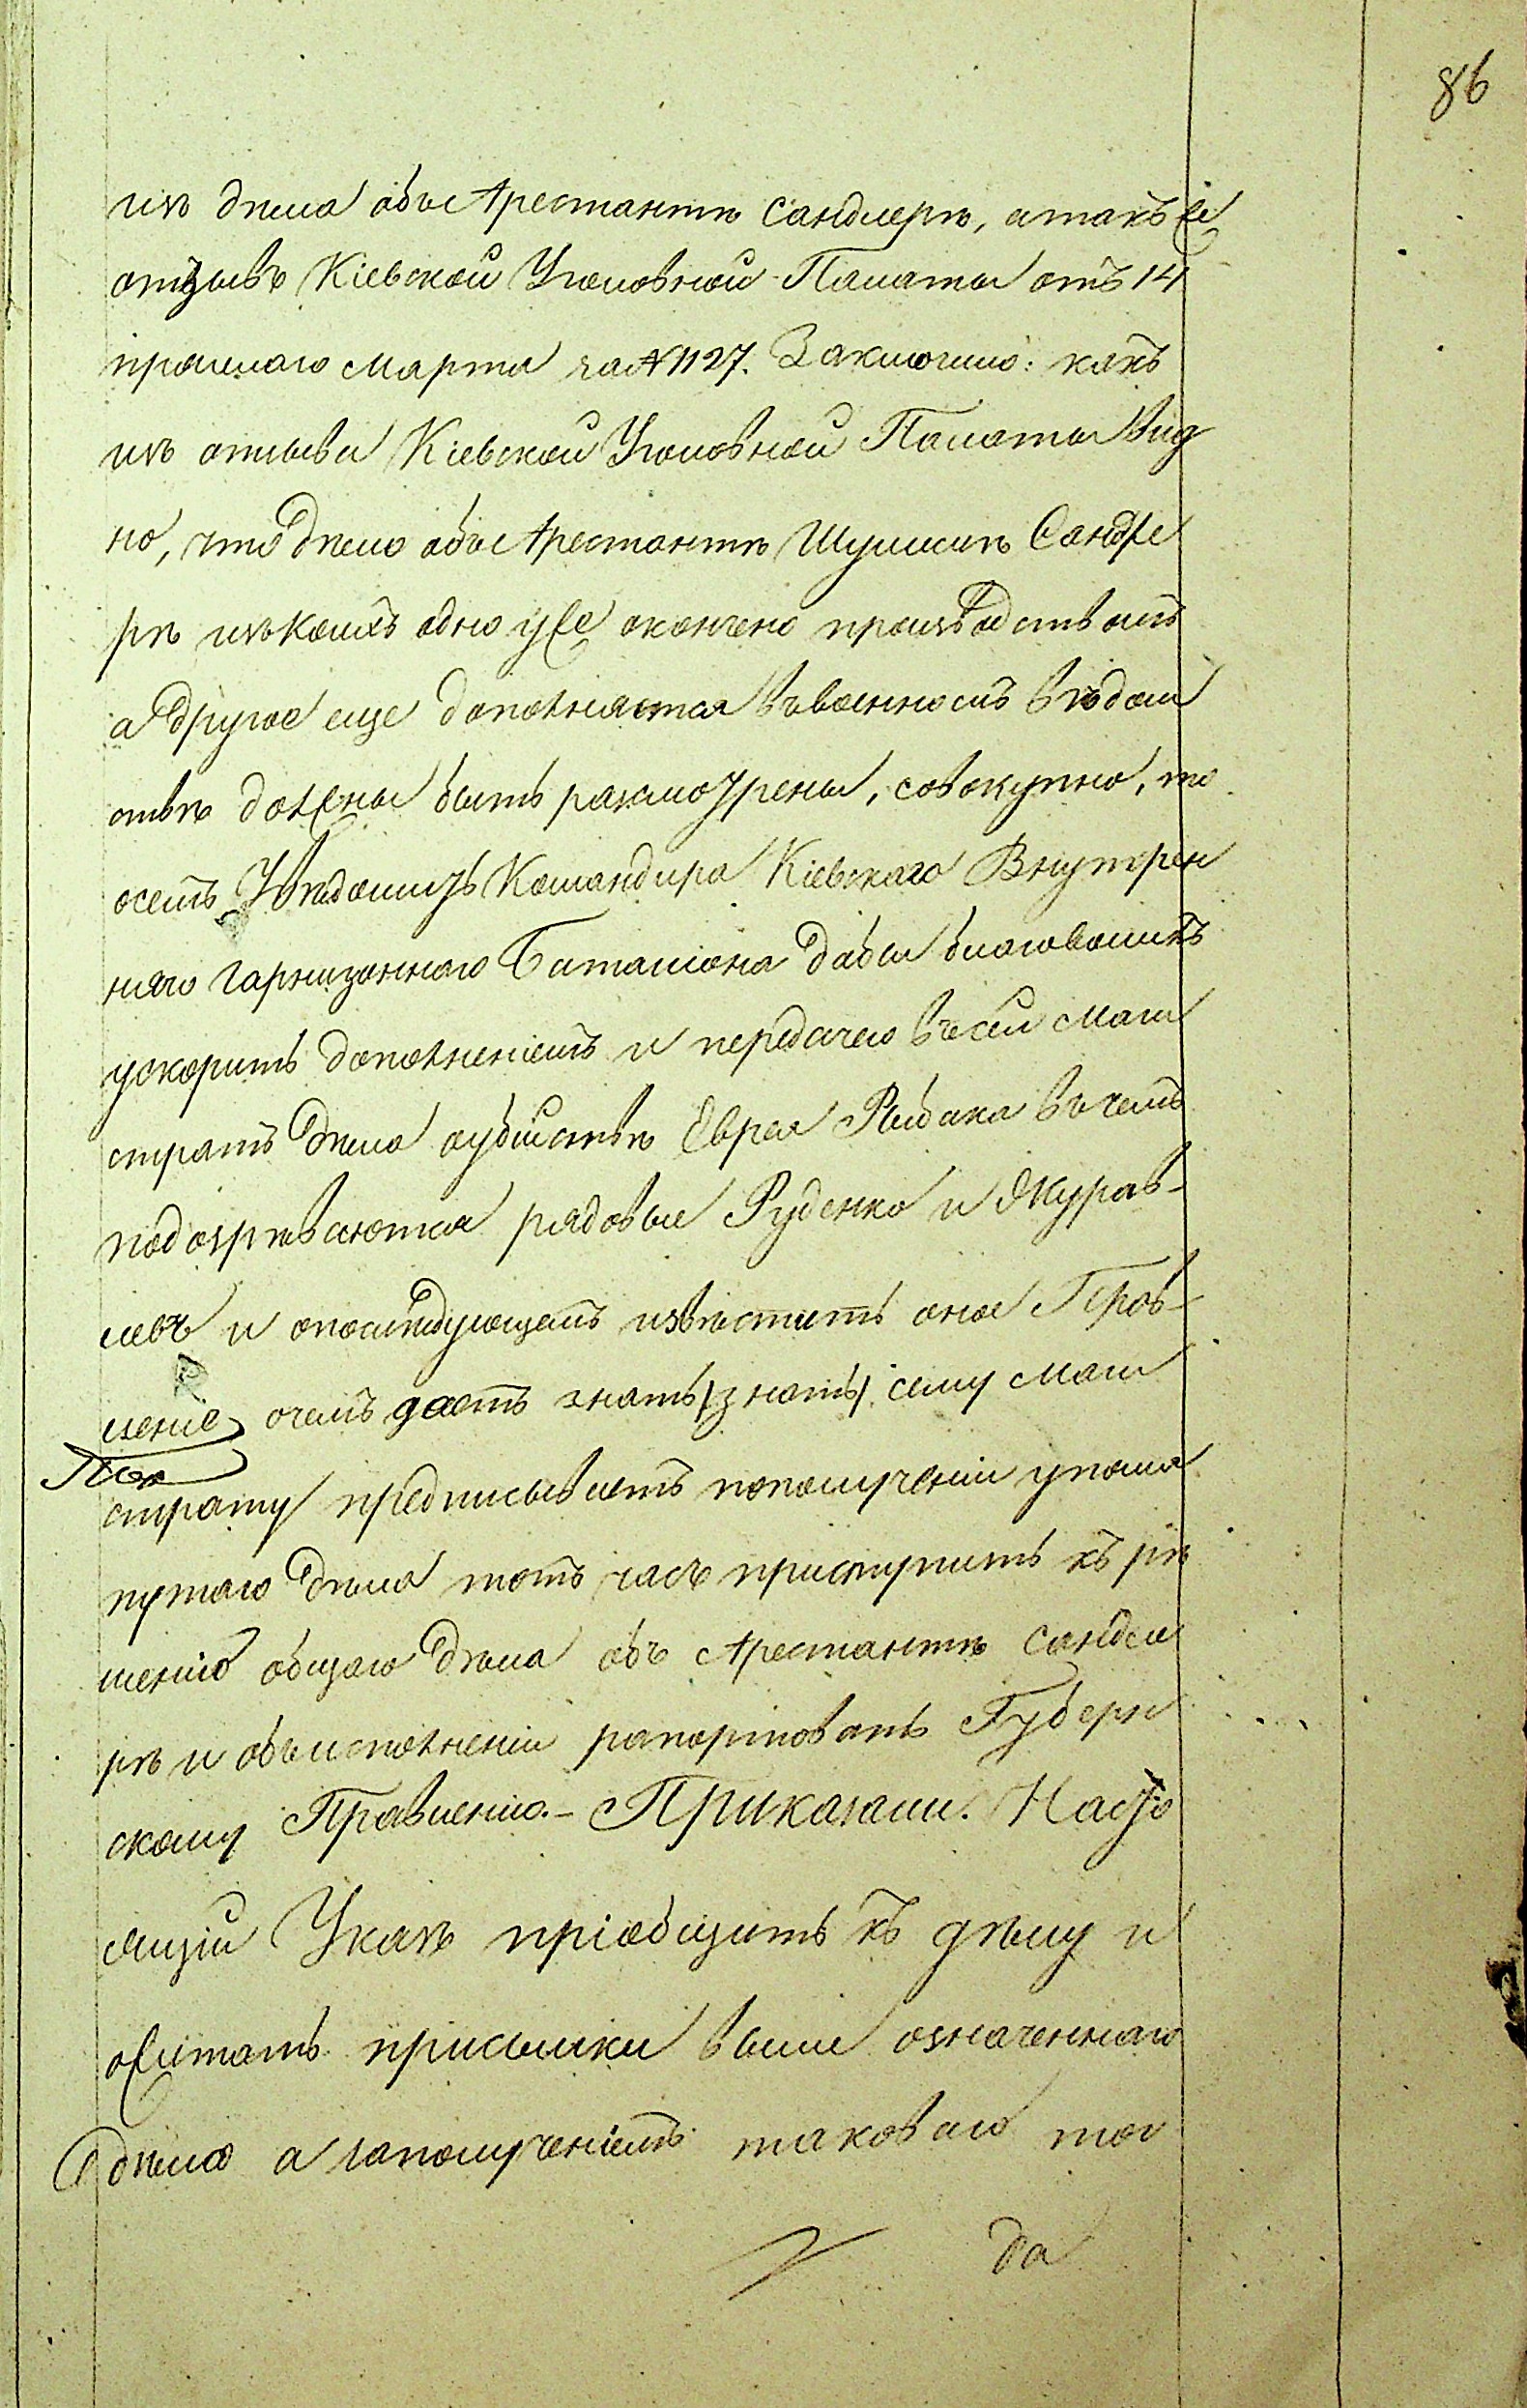 86
изъ дела объ Арестантѣ Сандлерѣ, атакъ же
отзывъ Кіевской Уголовной Палаты отъ 14
прошлаго Марта за № 1127. Заключило: какъ
изъ отзыва Кіевской Уголовной Палаты вид
но, что дѣло объ Арестантѣ Шулимѣ Сандле
рѣ изъ коихъ одно уже окончено производствомъ
а другое еще дополняется въ военномъ вѣдом
ствѣ должны быть разсмотрены, совокупно, то
осемъ Увѣдомить Командира Кіевскаго Внутрен
няго гарнизоннаго Баталіона дабы благоволилъ
ускорить дополненіемъ и передачею въ сей Маги
стратъ дѣла оубійствѣ Еврея Рыбака въ чемъ
подозрѣваются рядовые Руденко и Журав-
левъ и опослѣдующемъ извѣстить оное Прав-
леніе, очемъ даетъ знать /знать/ сему Маги
страту предписываетъ пополученіи упомя
нутаго дѣла тотъ часъ приступить къ рѣ
шенію общаго дѣла объ Арестантѣ Сандле
рѣ и объ исполненіи рапортовать Губерн
скому Правленію. - Приказали. Насто
ящій Указъ пріобщить къ дѣлу и
ожидать присылки выше означеннаго
дѣла а заполученіемъ таковаго тог
да